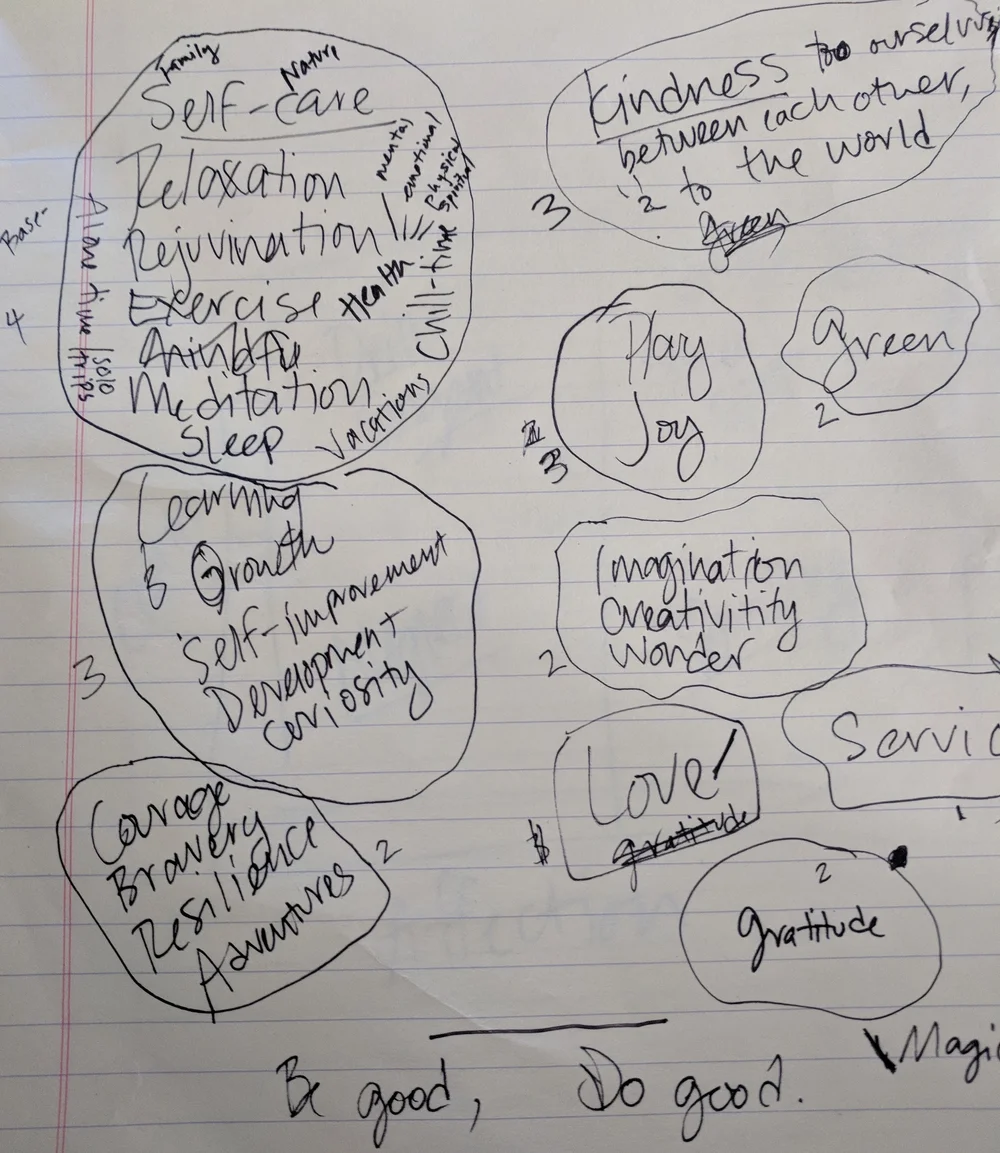 Family
Nature
Self-care
Relaxation
Rejuvination
Exercise
Meditation
Sleep
mental
emotional
physical
spiritual
Health
Chill-time
Vacations
Alone time/solo trips
Base-
4
Kindness to ourselves
between each other,
to the world
3
Play
Joy
3
green
2
Learning
Growth
Self-improvement
Development
curiosity
3
Imagination
Creativitity
Wonder
2
Courage
Bravery
Resilience
Adventures
2
Love!
gratitude
Servic
1
2
gratitude
Magi
Be good, Do good.